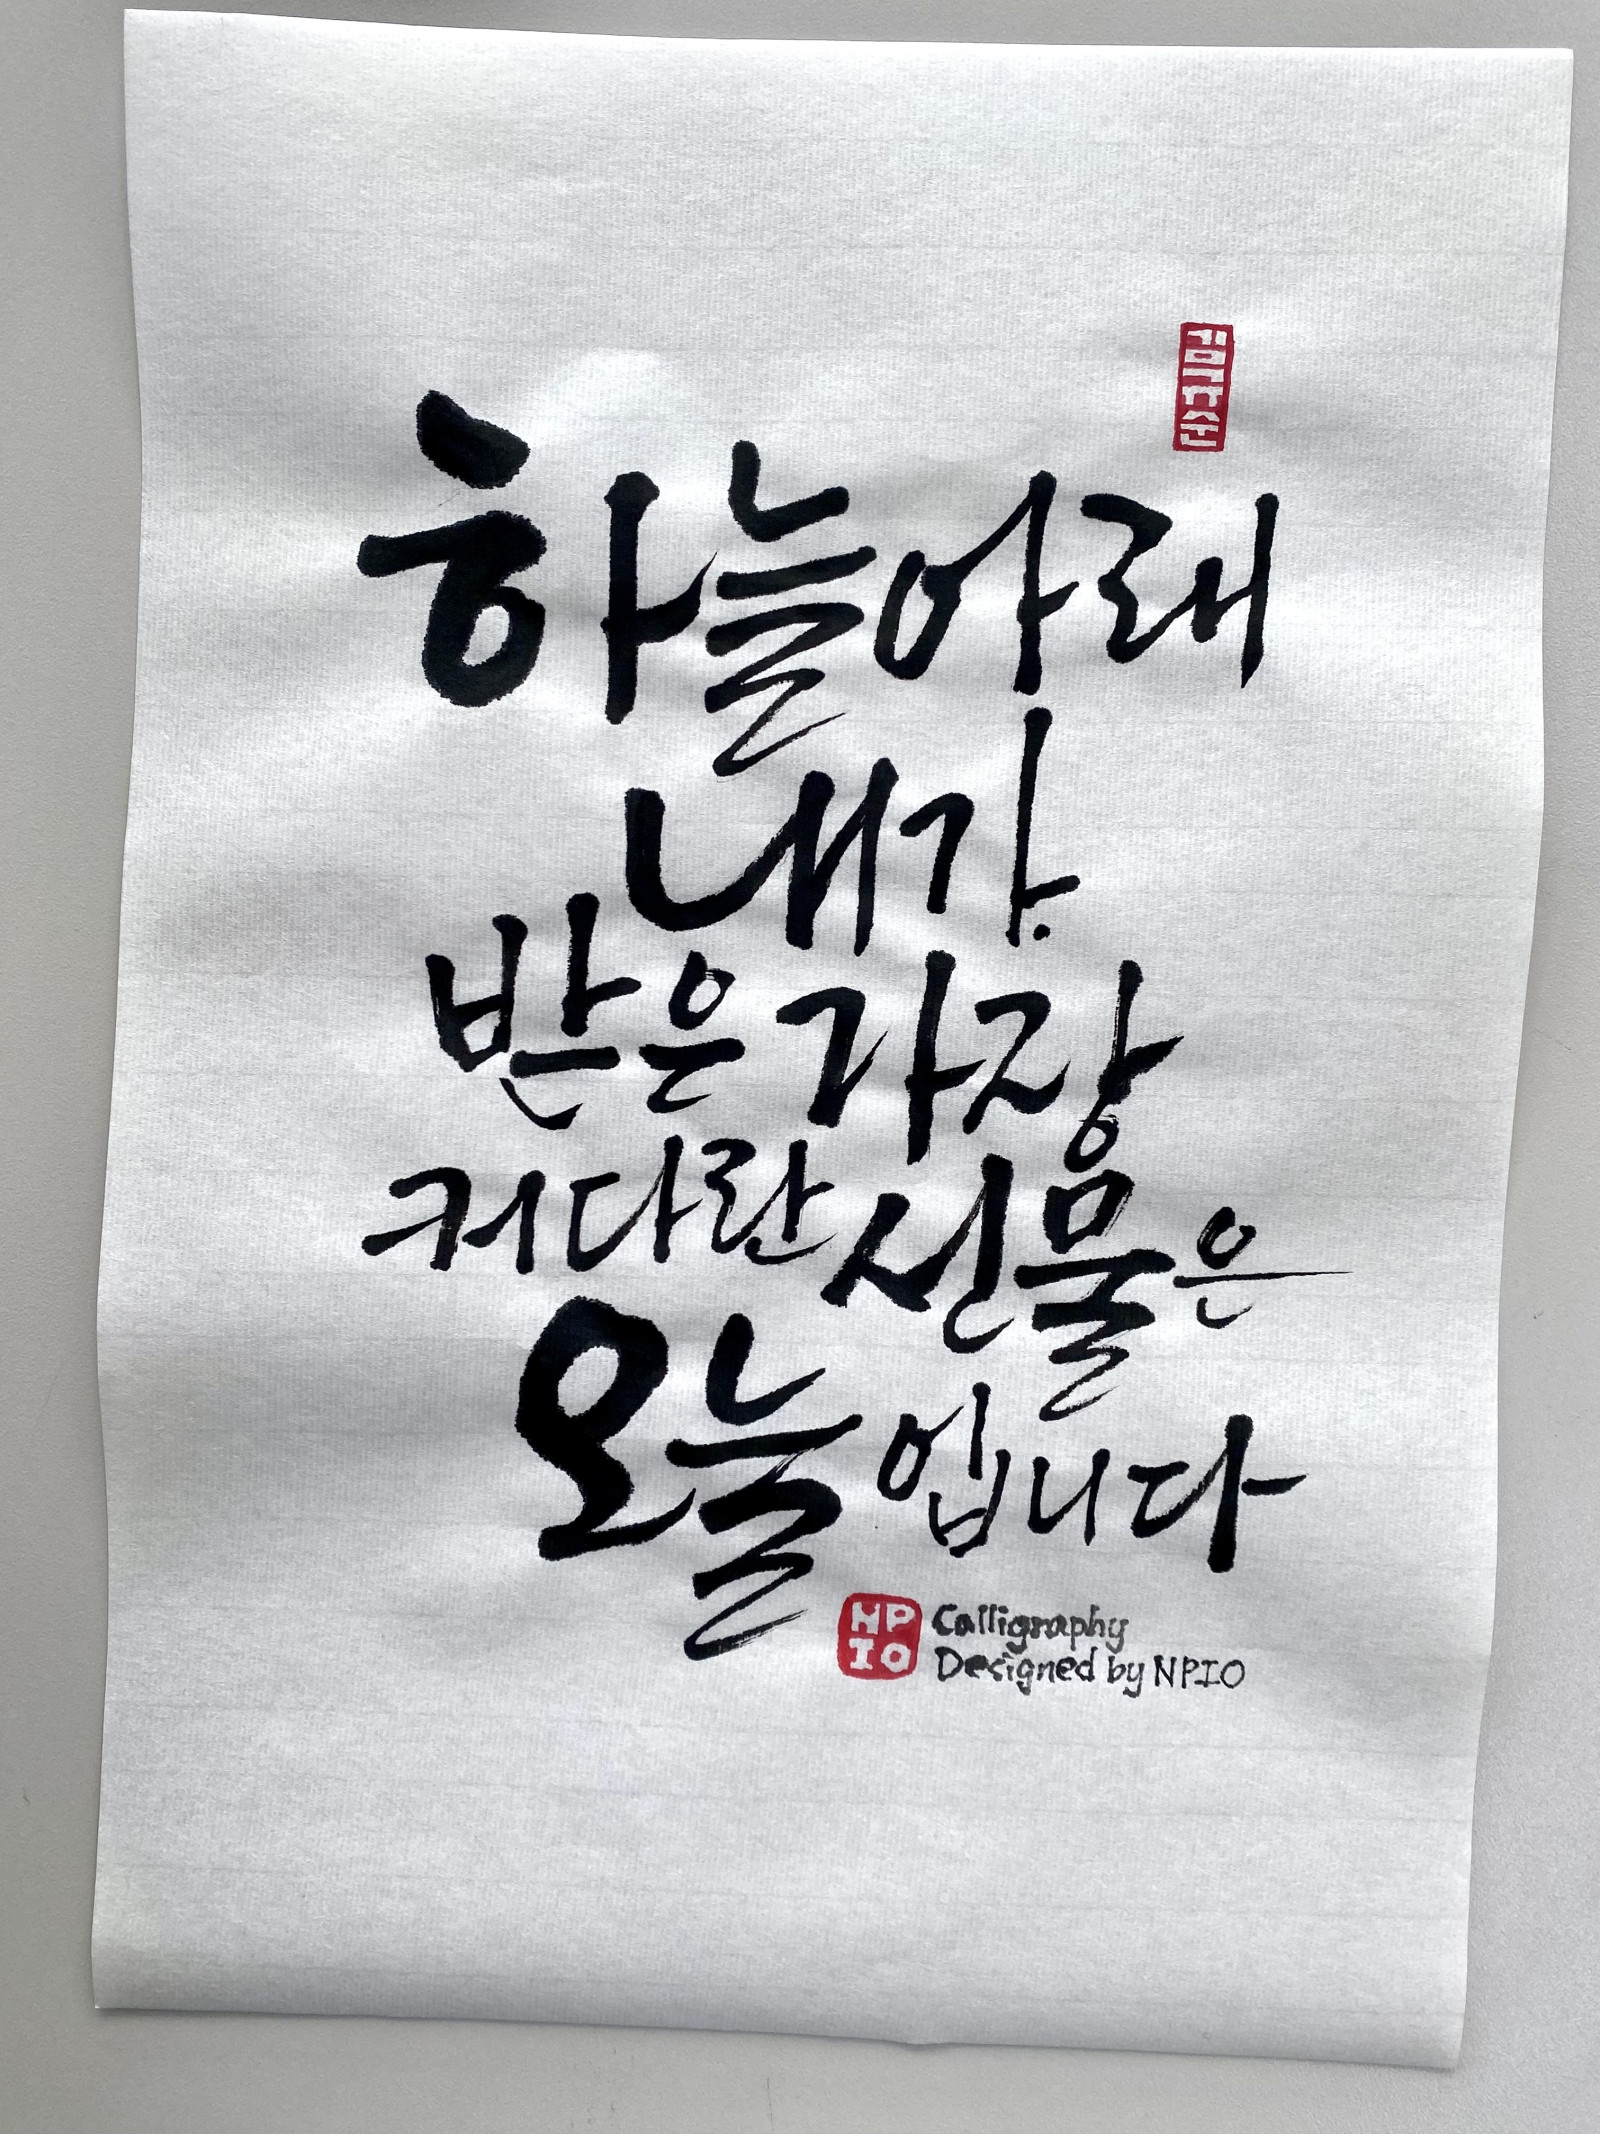 하늘아래
내가
받은 가장
커다란 선물은
오늘입니다
NP
IO
Calligraphy
Designed by NPIO